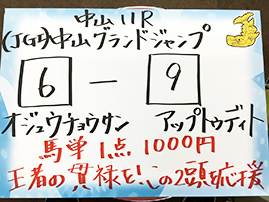 中山11R
(JGI)中山グランドジャンプ
6 - 9
オジュウチョウサン アップトゥデイト
馬単1点1000円
王者の貫禄を!この2頭を応援